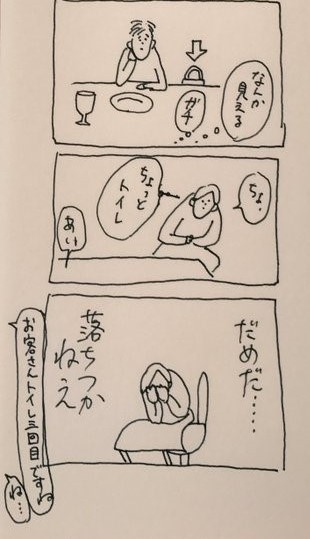 なんか
見える
ガチ
ちょ、
ちょっと
トイレ
あい
だめだ……
落ちつか
ねえ
お客さんトイレ三回目ですね
ね…